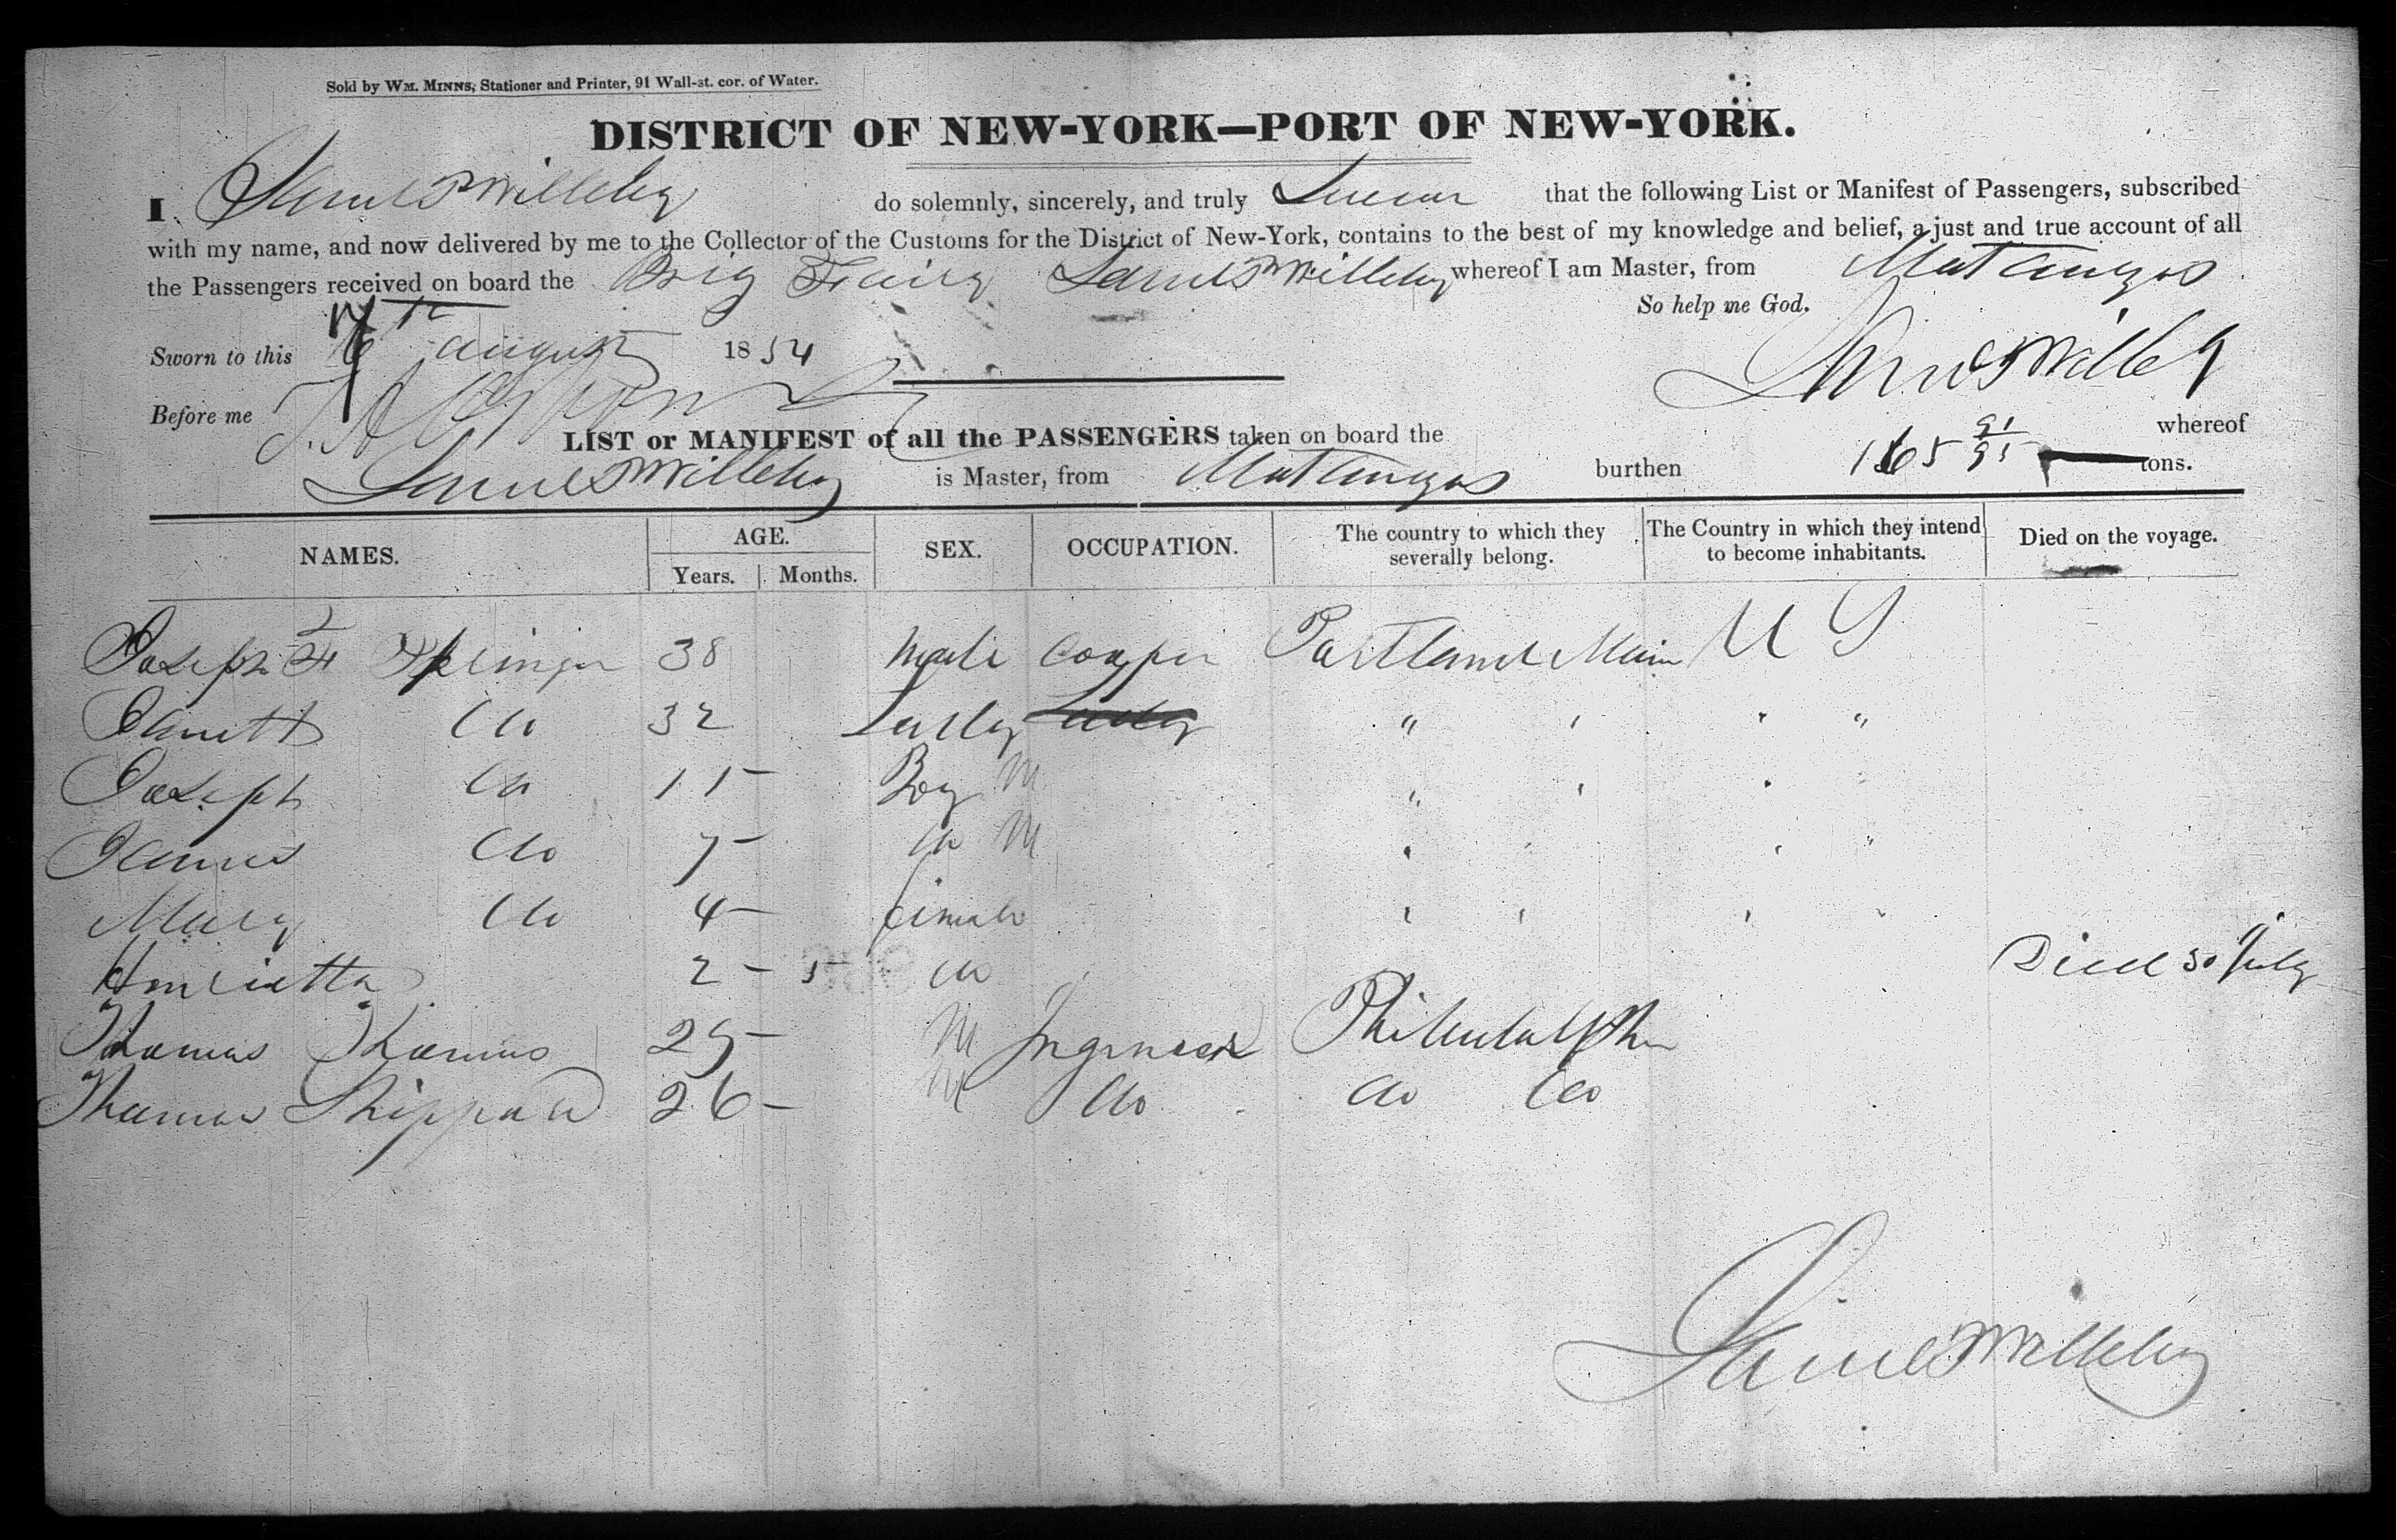 Sold by WM. MINNS, Stationer and Printer, 91 Wall-st. cor. of Water.
DISTRICT OF NEW-YORK—PORT OF NEW-YORK.
I do solemnly, sincerely, and truly Swear that the following List or Manifest of Passengers, subscribed
with my name, and now delivered by me to the Collector of the Customs for the District of New-York, contains to the best of my knowledge and belief, a just and true account of all
the Passengers received on board the Brig Fairy whereof I am Master, from Matanzas
So help me God.
Sworn to this august 1854
Before me
LIST or MANIFEST of all the PASSENGERS taken on board the whereof
is Master, from Matanzas burthen 165 91/95 tons.
NAMES. AGE. SEX. OCCUPATION. The country to which they severally belong. The Country in which they intend to become inhabitants. Died on the voyage.
Years. Months.
Joseph Springer 38 Male Cooper Portland Main U S
Do 32 Lady " " " "
Joseph Do 11 Boy M " " " "
James Do 7 Do M " " " "
Mary Do 4 female " " " "
Henrietta 2 5 do Died 30 July
Thomas Thomas 25 M Philadalpha
Thomas Shippard 26 M Do do do